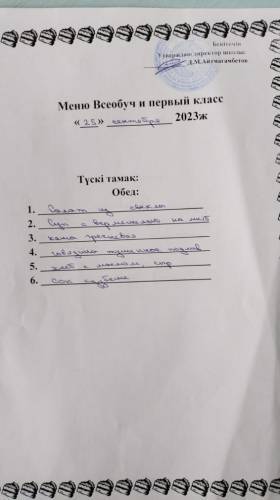 Бекітемін
Утверждаю директор школы:
Д.М.Айтмагамбетов
Меню Всеобуч и первый класс
« 25 » сентября 2023ж
Түскі тамақ:
Обед:
1. Салат из свеклы
2. Суп с вермешелью на
3. каша гречневая
4. говядина тушенное
5. хлеб с маслом, сыр
6. Сок